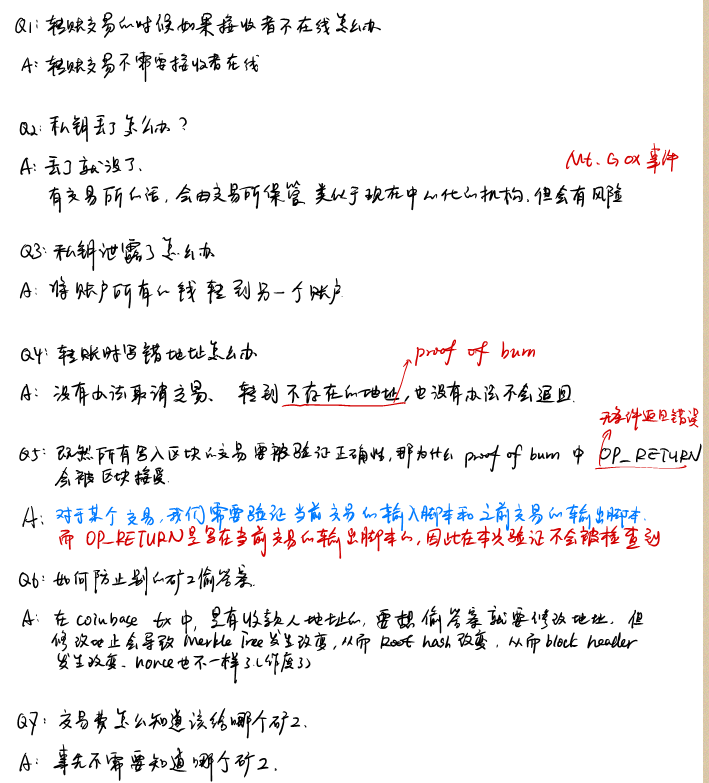 Q1: 转账交易的时候如果接收者不在线怎么办
A: 转账交易不需要接收者在线
Q2: 私钥丢了怎么办?
A: 丢了就没了.
Mt. Gox 事件
有交易所的话, 会由交易所保管 类似于现在中心化的机构, 但会有风险
Q3: 私钥泄露了怎么办
A: 将账户所有的钱转到另一个账户
Q4: 转账时写错地址怎么办
proof of burn
A: 没有办法取消交易、 转到不存在的地址, 也没有办法不会退回
无条件返回错误
Q5: 既然所有写入区块的交易要被验证正确性, 那为什么 proof of burn 中 OP_RETURN
会被区块接受
A: 对于某个交易, 我们需要验证当前交易的输入脚本和之前交易的输出脚本.
而 OP_RETURN是写在当前交易的输出脚本的, 因此在本次验证不会被检查到
Q6: 如何防止别的矿工偷答案.
A: 在 coinbase tx 中, 是有收款人地址的, 要想偷答案就要修改地址. 但
修改地址会导致 Merkle Tree 发生改变, 从而 Root hash 改变, 从而 block header
发生改变. nonce 也不一样了(作废了)
Q7: 交易费怎么知道该给哪个矿工.
A: 事先不需要知道哪个矿工.